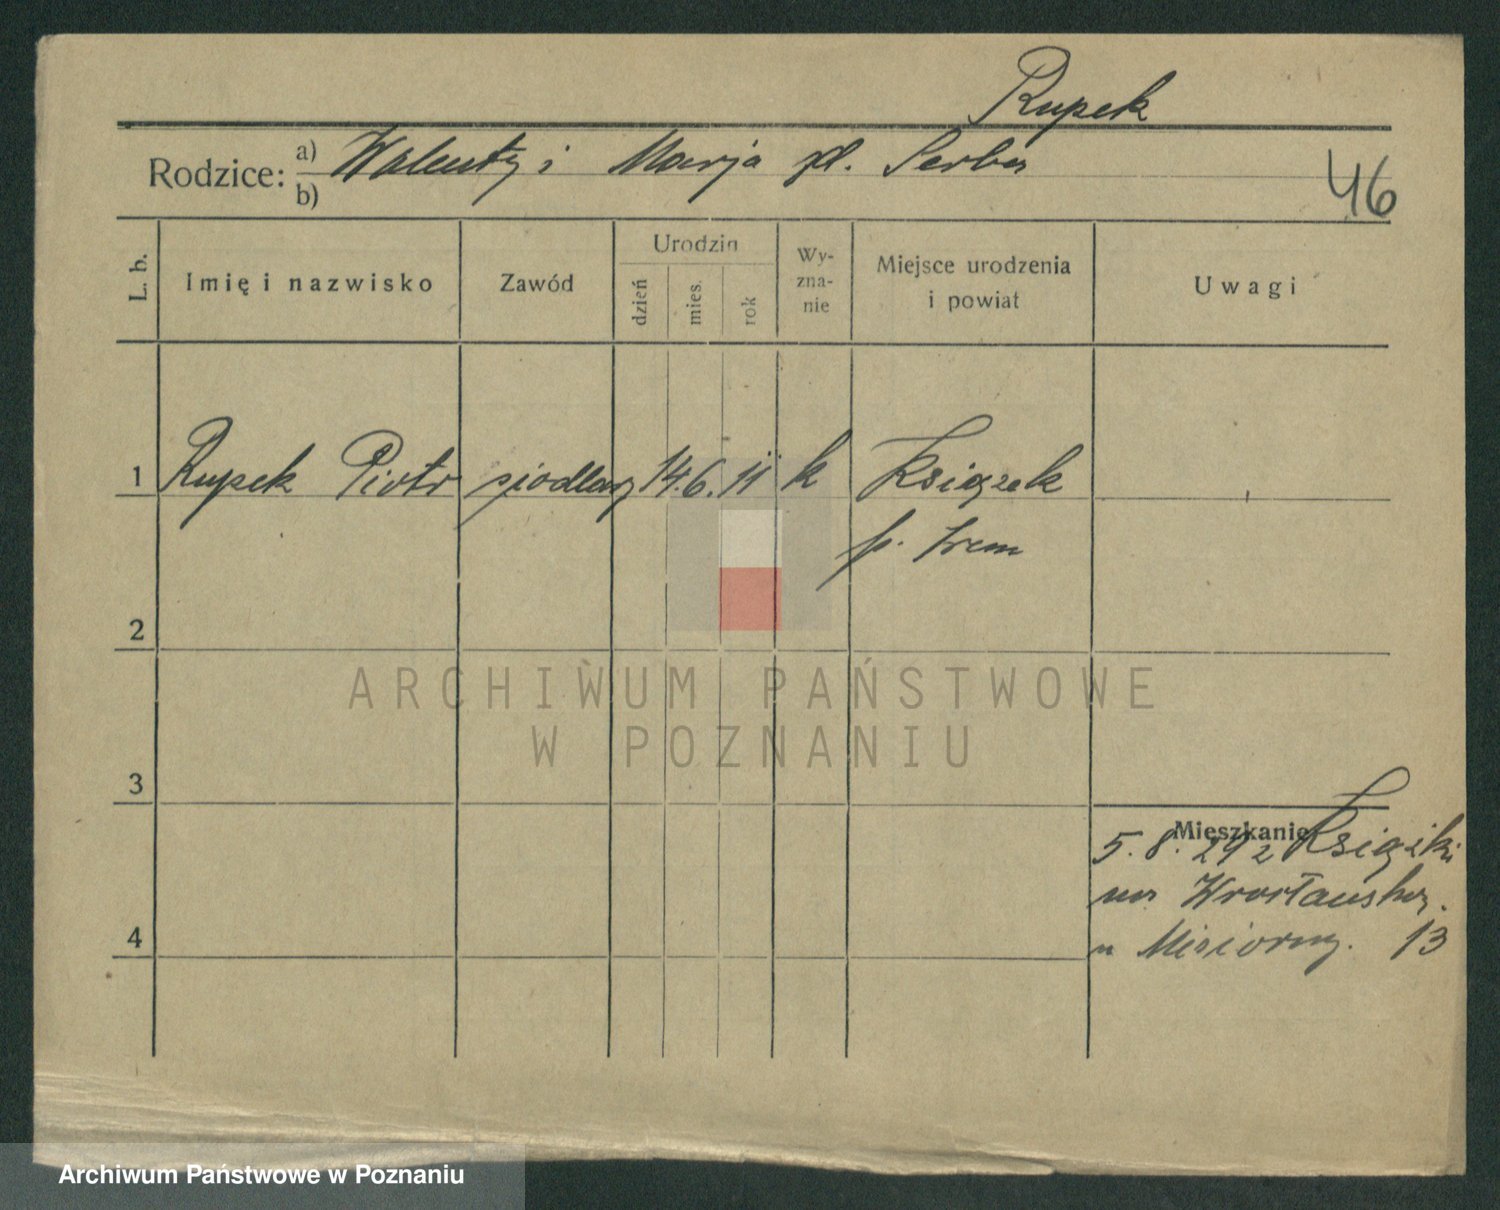 Rupek
Rodzice: a) Walenty i Marja zd. Serba
b)
46
L. b. Imię i nazwisko Zawód Urodzin dzień mies. rok Wyznanie Miejsce urodzenia i powiat Uwagi
1 Rupek Piotr siodlarz 14. 6. 11 k Książek
p. Śrem
2
ARCHIWUM PAŃSTWOWE
W POZNANIU
3
Mieszkanie
5. 8. 29 z Książki
na Wrocławską.
4 u Misiorny. 13
Archiwum Państwowe w Poznaniu